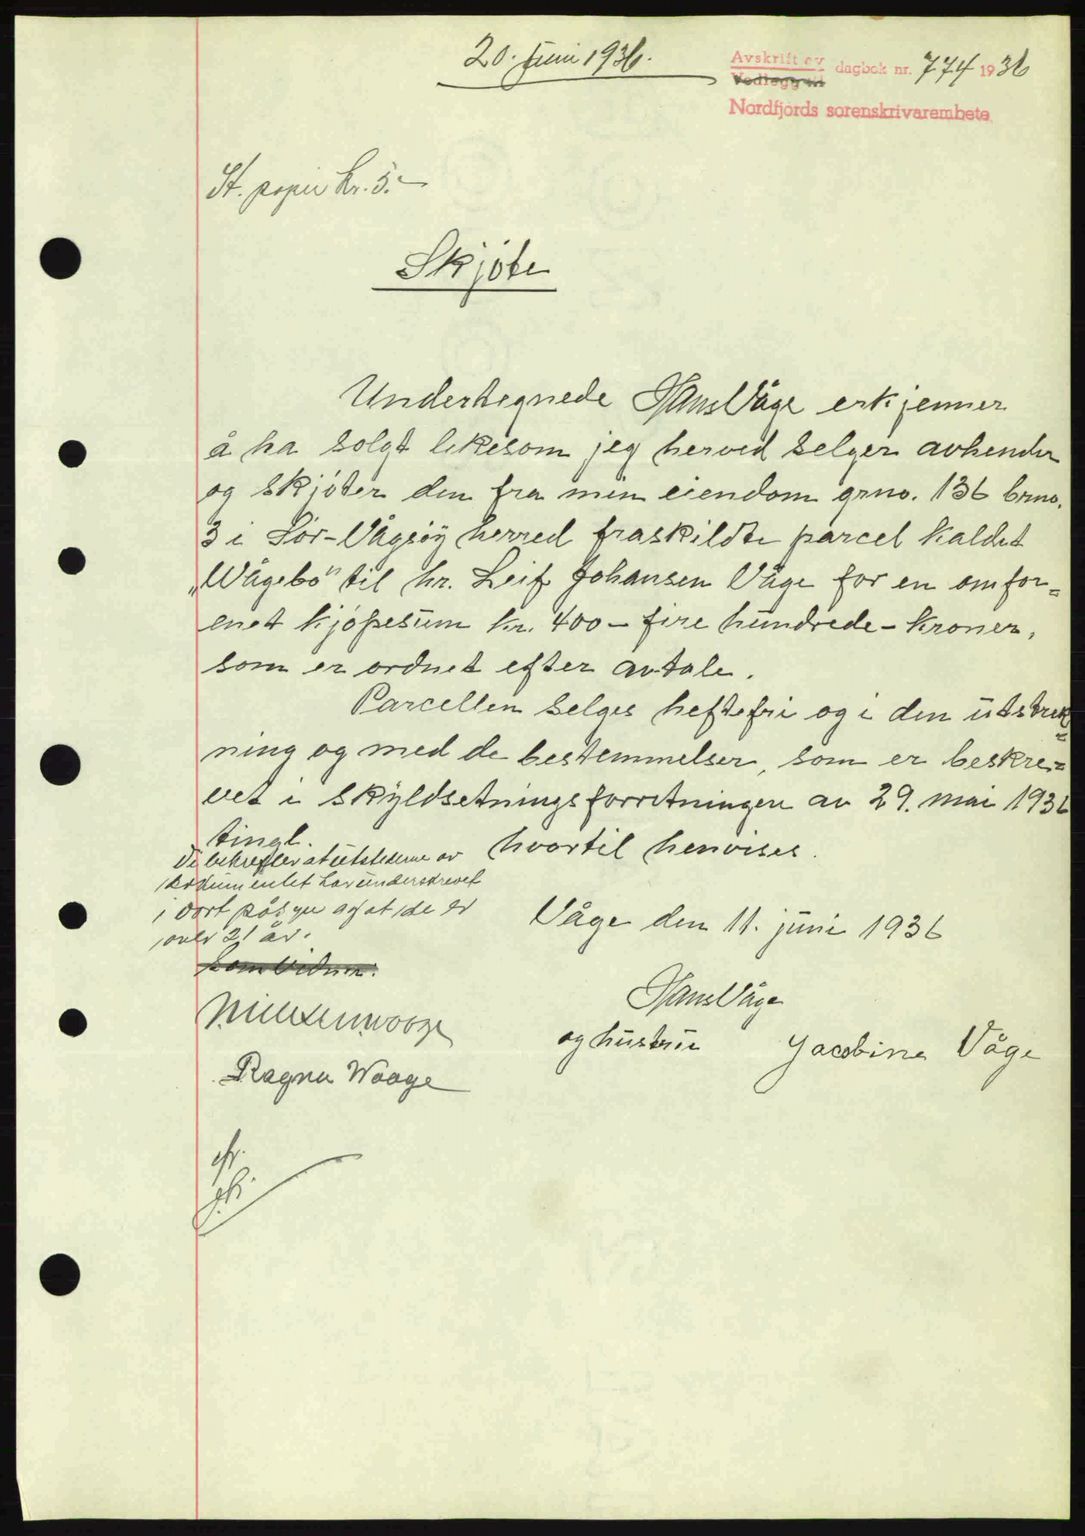 20. juni 1936.
Avskrift av
Vedlegg til
dagbok nr. 774 1936
Nordfjords sorenskrivarembete
St. papir kr. 5.-
Skjöte
Undertegnede Hans Våge erkjenner
å ha solgt likesom jeg herved selger avhender
og skjöter den fra min eiendom grno. 136 brno.
3 i Sör-Vågsöy herred fraskildte parcel kaldet
"Wågebö" til hr. Leif Johansen Våge for en omfor=
enet kjöpesum kr. 400 - fire hundrede - kroner,
som er ordnet efter avtale.
Parcellen selges heftefri og i den utstrek=
ning og med de bestemmelser, som er beskre=
vet i skyldsetningsforretningen av 29. mai 1936
tingl.
hvortil henvises.
Vi bekrefter at utstederne av
dokumentet har underskrevet
i vort påsyn og at de er
over 21 år.
Våge den 11. juni 1936
Hans Våge
og hustru Jacobine Våge
Ragna Waage